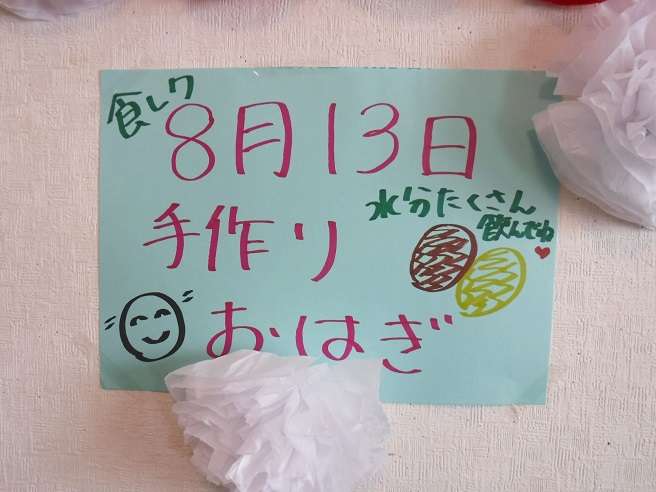 食レク
8月13日
水分たくさん
飲んでね
手作り
おはぎ